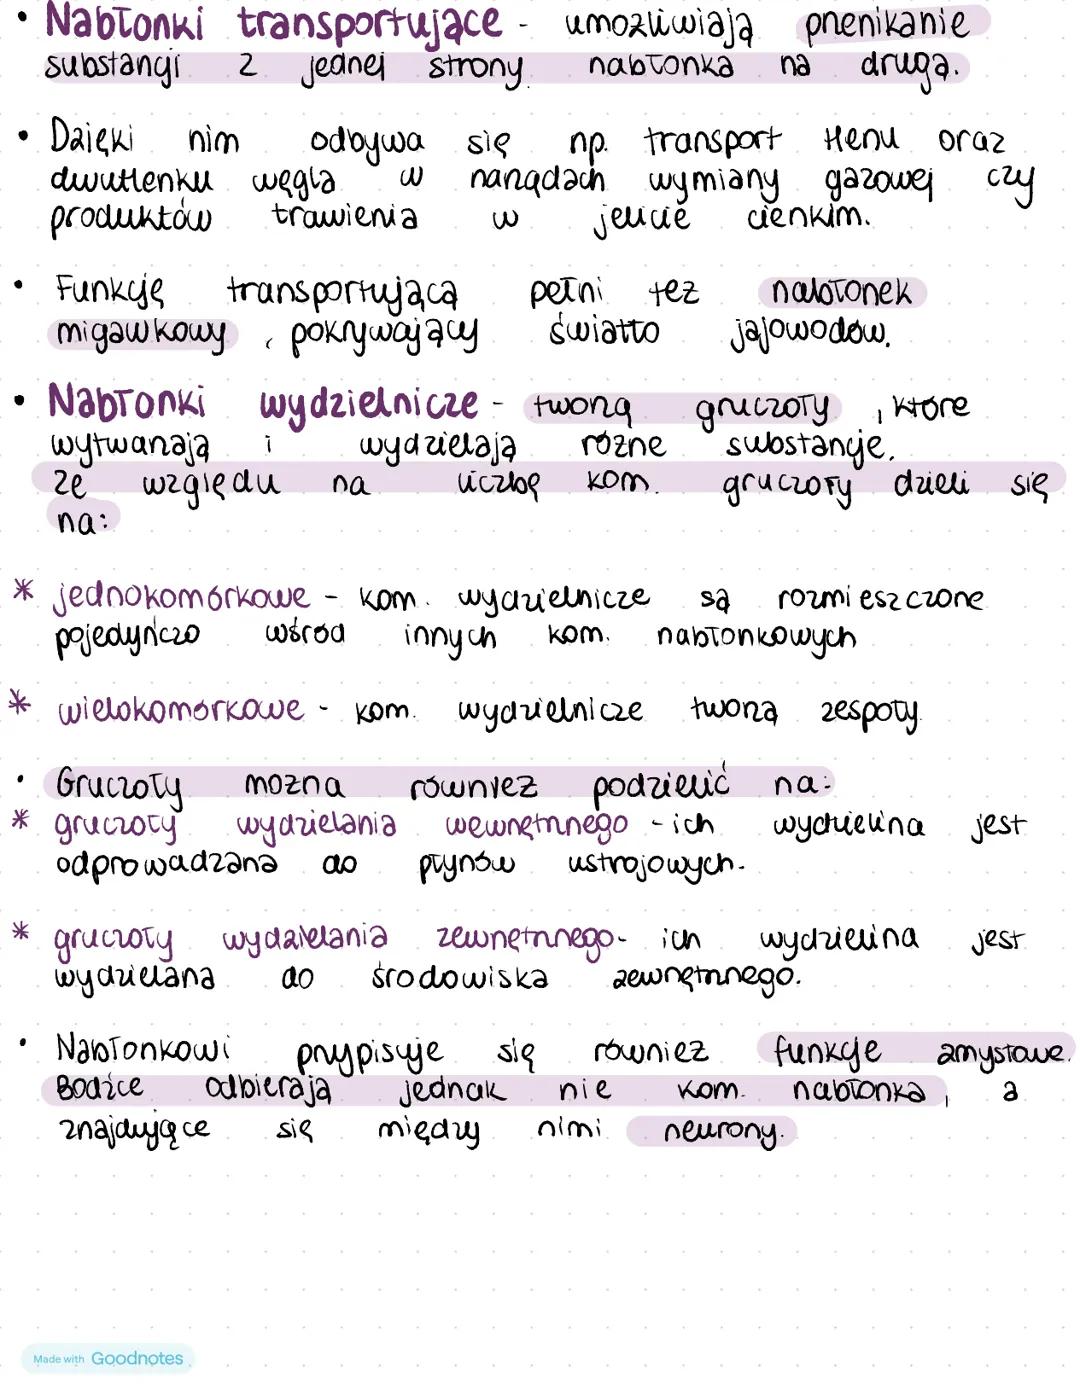 • Nabłonki transportujące - umożliwiają przenikanie
substancji z jednej strony nabłonka na drugą.
• Dzięki nim odbywa się np. transport tlenu oraz
dwutlenku węgla w narządach wymiany gazowej czy
produktów trawienia w jelicie cienkim.
• Funkcję transportującą pełni też nabłonek
migawkowy, pokrywający światło jajowodów.
• Nabłonki wydzielnicze - tworzą gruczoły, które
wytwarzają i wydzielają różne substancje.
Ze względu na liczbę kom. gruczoły dzieli się
na:
* jednokomórkowe - kom. wydzielnicze są rozmieszczone
pojedyńczo wśród innych kom. nabłonkowych
* wielokomórkowe - kom. wydzielnicze tworzą zespoły.
• Gruczoły można również podzielić na:
* gruczoły wydzielania wewnętrznego - ich wydzielina jest
odprowadzana do płynów ustrojowych.
* gruczoły wydzielania zewnętrznego - ich wydzielina jest
wydzielana do środowiska zewnętrznego.
• Nabłonkowi przypisuje się również funkcje zmysłowe.
Bodźce odbierają jednak nie kom. nabłonka, a
znajdujące się między nimi neurony.
Made with Goodnotes